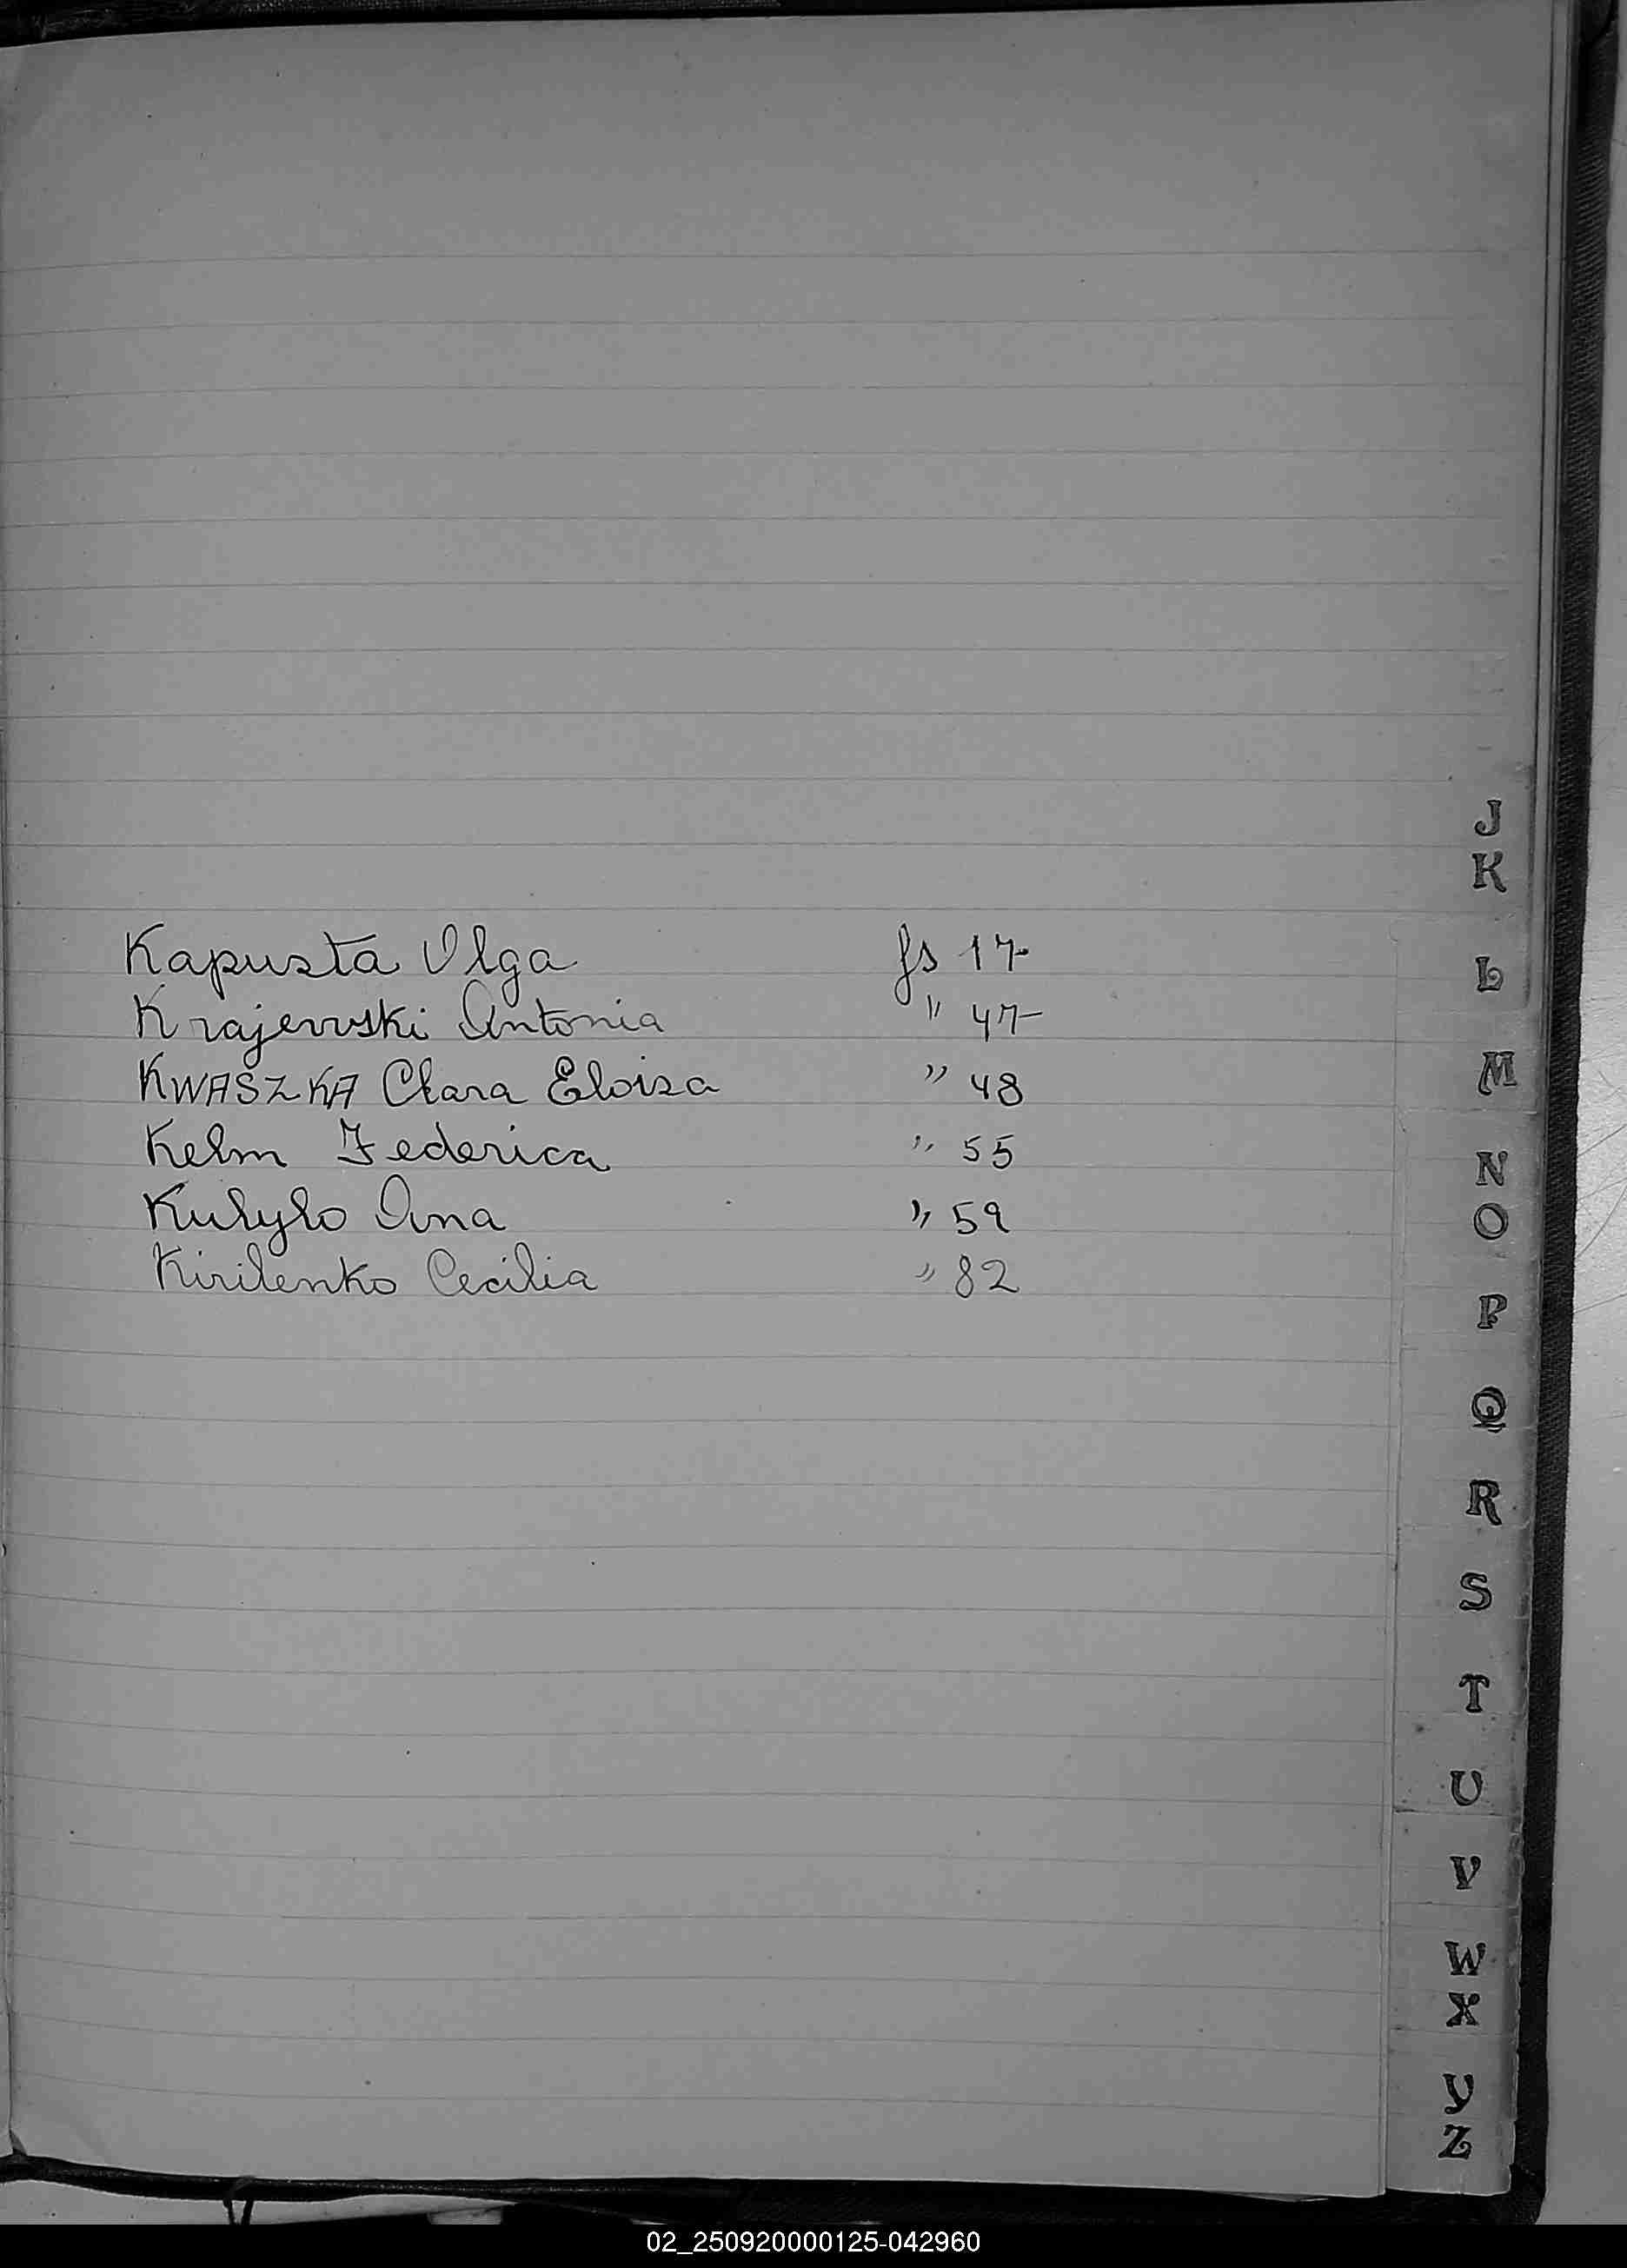 J
K
Kapusta Olga fs 17
L
Krajewski Antonia " 47
KWASZKA Clara Eloisa " 48
M
Kelm Federica " 55
N
Kulylo Ana " 59
O
Kirilenko Cecilia " 82
P
Q
R
S
T
U
V
W
X
Y
Z
02_250920000125-042960